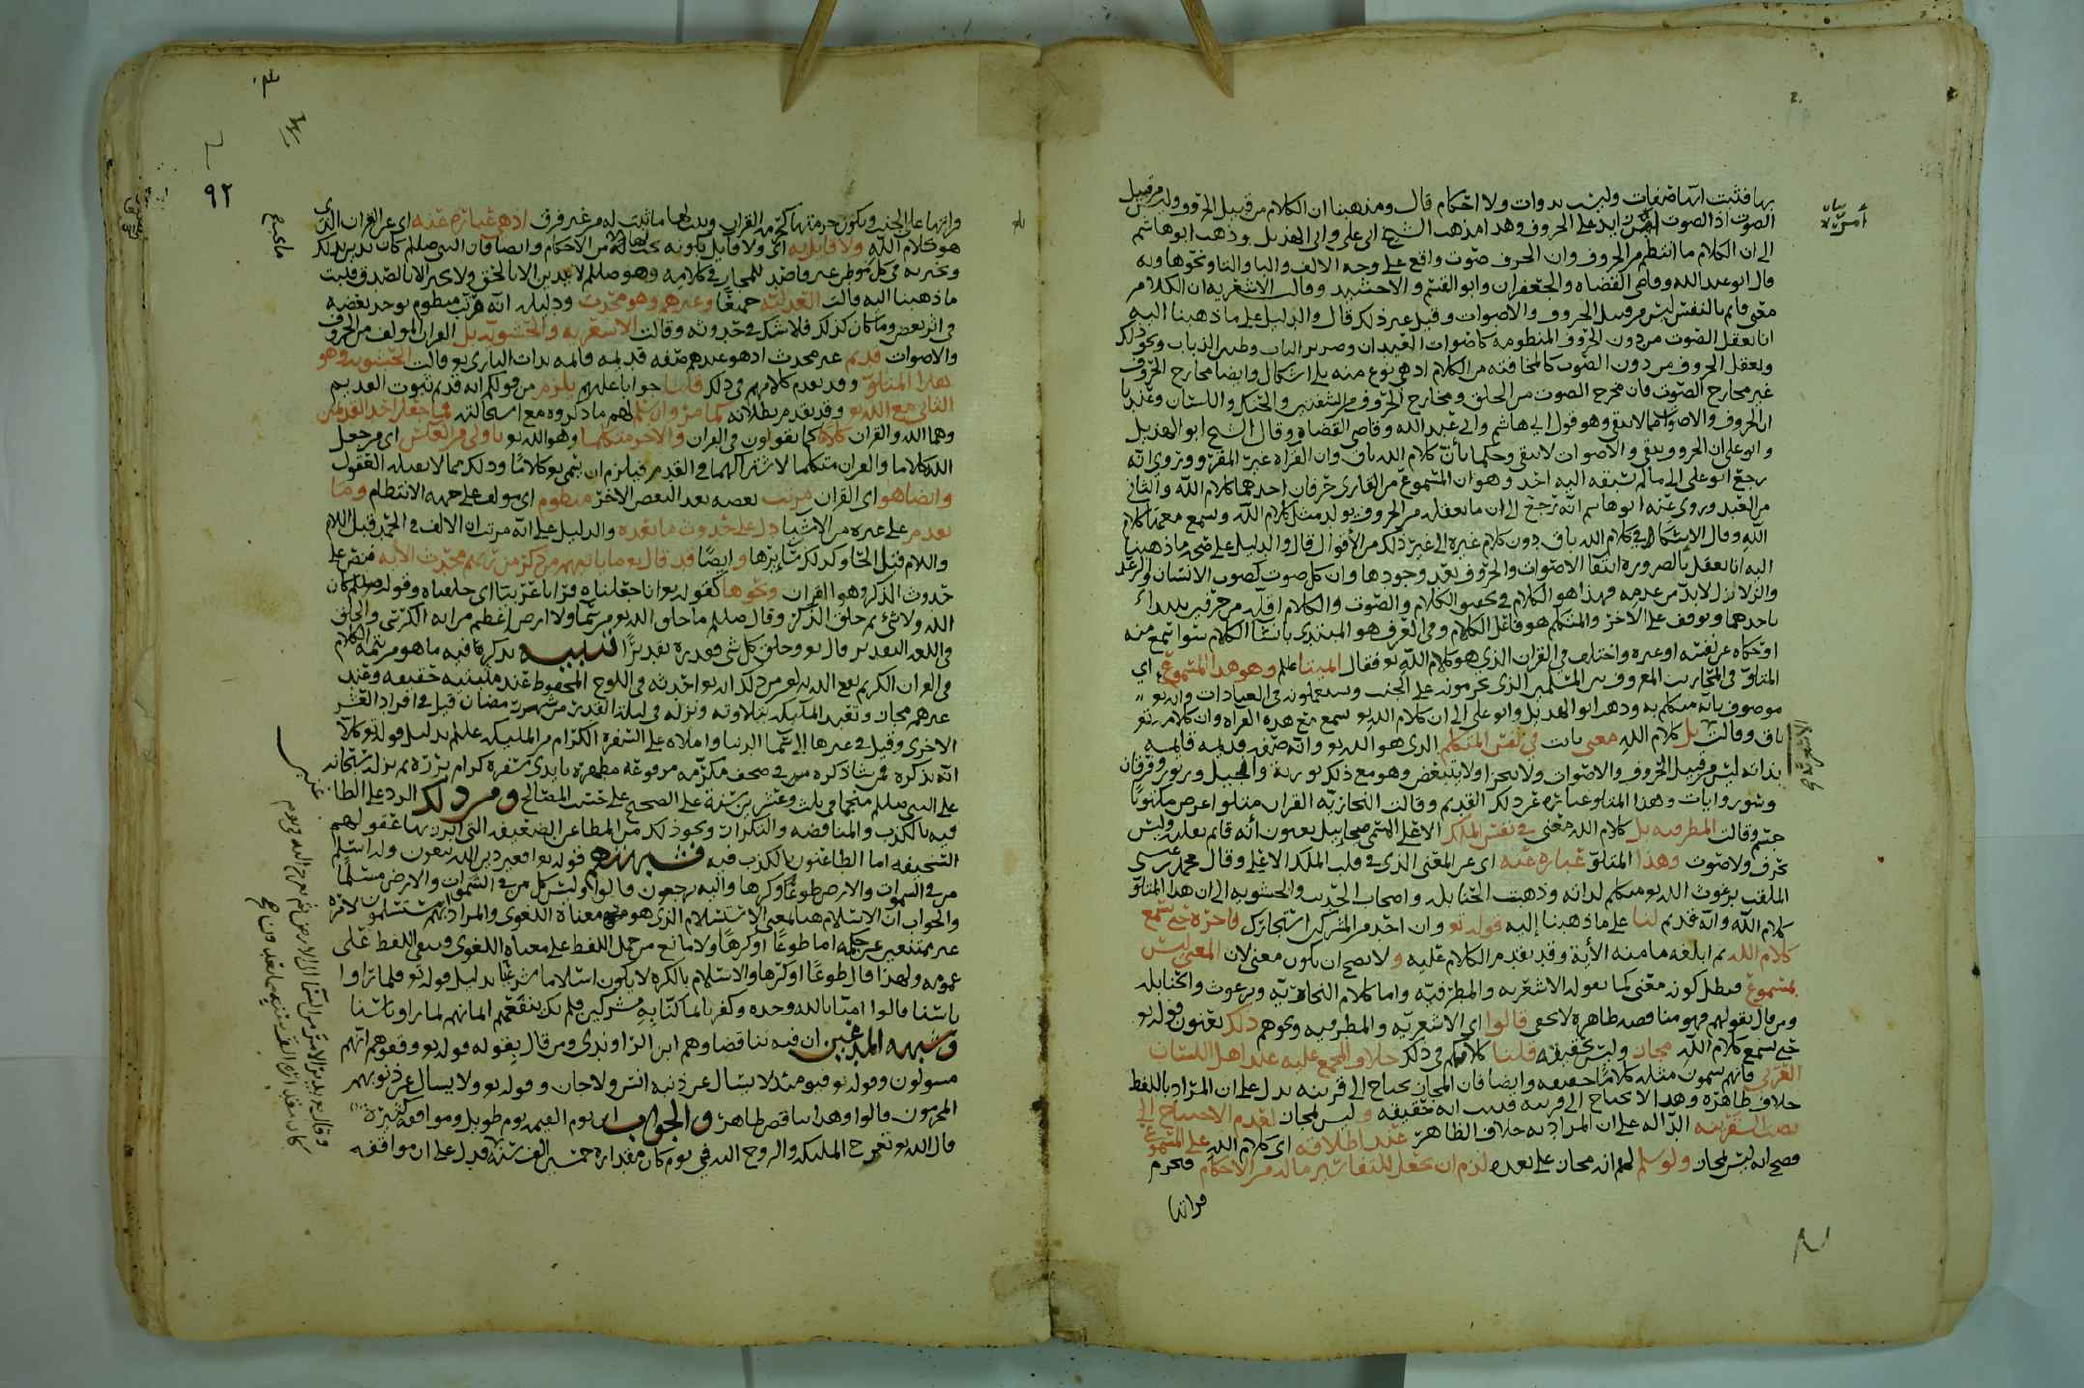 بها فثبت انها صفات وليست بذوات ولا احكام قال ومذهبنا ان الكلام من قبيل الحروف وليس من قبيل
الصوت اذ الصوت ابد على الحروف وهذا مذهب الشيخ ابي علي وابي الهذيل وذهب ابو هاشم
الى ان الكلام ما انتظم من الحروف وان الحرف صوت واقع على وجه الالف والبا والتا ونحوها وبه
قال ابو عبد الله وقاضي القضاه والجعفران وابو القسم والاخشيد وقالت الاشعرية ان الكلام
معنى قائم بالنفس ليس من قبيل الحروف والاصوات وقيل غير ذلك قال والدليل على ما ذهبنا اليه
انا نعقل الصوت من دون الحروف المنظومة كاصوات العيدان وصرير الباب وطنين الذباب ونحو ذلك
ونعقل الحروف من دون الصوت كالمخافته من الكلام اذ هي نوع منه بلا اشكال وايضا مخارج الحروف
غير مخارج الصوت فان مخرج الصوت من الحلق ومخارج الحروف من الشفتين والحنك واللسان وعندنا
ان الحروف والاصوات مما لا يبقى وهو قول ابي هاشم وابي عبد الله وقاضي القضاه وقال الشيخ ابو الهذيل
وابو علي ان الحروف تبقى والاصوات لا تبقى وحكما بأن كلام الله باق وان القراة غير المقرو وروي انه
رجع ابو علي الى ما لم يسبقه اليه احد وهو ان المسموع من القاري حرفان احدهما كلام الله والثاني
من العبد وروى عنه ابو هاشم انه رجع الى ان ما نعقله من الحروف يولد مثل كلام الله ويسمع معهما كلام
الله وقال الاسكافي كلام الله باق دون كلام غيره الى غير ذلك من الأقوال قال والدليل على صحة ما ذهبنا
اليه انا نعقل بالضرورة انتفا الاصوات والحروف بعد وجودها وان كل صوت كصوت الانسان والرعد
والزلازل لا بد من عدمه فهذا هو الكلام في تحقيق الكلام والصوت والكلام اقله من حرفين يبتدأ
باحدهما ويوقف على الآخر والمتكلم هو فاعل الكلام وفي العرف هو المبتدي بانشا الكلام سوا سمع منه
او حكاه عن نفسه او غيره واختلف في القران الذي هو كلام الله تع فقال ائمتنا علم وهو هذا المسموع اي
المتلو في المحاريب المعروف بين المسلمين الذي يحرمونه على الجنب ويستعملونه في العبادات والله تع
موصوف بانه متكلم به وذهب ابو الهذيل وابو علي الى ان كلام الله تع يسمع مع هذه القراه وان كلامه تع
باق وقالت بل كلام الله معنى ثابت في نفس المتكلم الذي هو الله تع وانه صفة قديمه قائمه
بذاته ليس من قبيل الحروف والاصوات ولا يتجزا ولا يتبعض وهو مع ذلك تورية وانجيل وزبور وفرقان
وسور وايات وهذا المتلو عبارة عن ذلك القديم وقالت النجارية القران متلوا عرض مكتوبًا
جسم وقالت المطرفيه بل كلام الله معنى في نفس الملك الاعلى المسمى ميخائيل يعنون أنه قائم بقلبه وليس
بحرف ولا صوت وهذا المتلو عبارة عنه اي عن المعنى الذي في قلب الملك الاعلى وقال محمد بن عيسى
الملقب برغوث الله تع متكلم لذاته وذهبت الحنابله واصحاب الحديث والحشويه الى ان هذا المتلو
كلام الله وانه قديم لنا على ما ذهبنا إليه قوله تع وان احد من المشركين استجارك فاجره حتى يسمع
كلام الله ثم ابلغه مامنه الآية وقد تقدم الكلام عليه ولا يصح ان يكون معنى لان المعنى ليس
بمسموع فبطل كونه معنى كما يقوله الاشعرية والمطرفيه واما كلام النجارية وبرغوث والحنابله
ومن قال بقولهم فهو مناقضه ظاهرة لا تخفى قالوا اي الاشعريه والمطرفيه ونحوهم ذلك يعنون قوله تع
حتى يسمع كلام الله مجاز وليس بحقيقه قلنا كلامكم في ذلك خلاف المجمع عليه عند اهل اللسان
العربي فانهم يسمون مثله كلامًا حقيقه وايضا فان المجاز يحتاج الى قرينه تدل على ان المراد باللفظ
خلاف ظاهره وهذا لا يحتاج الى قرينه فثبت انه حقيقه وليس بمجاز لعدم الاحتياج الى
نصب القرينه الدآله على ان المراد به خلاف الظاهر عند اطلاقه اي كلام الله على المسموع
فصح انه ليس بمجاز ولو سلم لهم انه مجاز على بعده لزم ان يجعل للتفاسير ماله من الاحكام فيحرم
قراتها
قراتها على الجنب ويكون حرمتها كحرمة القران ويثبت لها ما ثبت له من غير فرق اذ هي عبارة عنه اي عن القران الذي
هو كلام الله ولا قايل به اي ولا قايل بكونه من الاحكام وايضا فان النبي صللم كان يدين بذلك
ويخبر به في كل موطن غير قاصد للمجاز في كلامه وهو صللم لا يدين الا بالحق ولا يخبر الا بالصدق فثبت
ما ذهبنا اليه قالت العدلية جميعًا وغيرهم وهو محدث ودليله انه مرتب منظوم يوجد بعضه
في اثر بعض وما كان كذلك فلا شك في حدوثه وقالت الاشعريه والحشويه بل القران المولف من الحروف
والاصوات قديم غير محدث اذ هو عندهم صفه قديمه قائمه بذات الباري تع وقالت الحشويه وهو
هذا المتلو وقد تقدم كلامهم في ذلك قلنا جوابا عليهم يلزم من قولكم انه قديم ثبوت القديم
الثاني مع الله تع وقد تقدم بطلانه كما مر وان سلم لهم ما ذكروه مع استحالته فما جعل احد القديمين
وهما الله والقران كلامًا كما يقولون في القران والاخر متكلما وهو الله تع باولى من العكس اي من جعل
الله كلاما والقران متكلما لاشتراكهما في القدم فيلزم ان يسمى تع كلامًا وذلك مما لا تقبله العقول
وايضا هو اي القران مرتب بعضه بعد البعض الآخر منظوم اي مولف على جهة الانتظام وما
تقدم على غيره من الاشيا دل على حدوث ما بعده والدليل على انه مرتب ان الالف في الحمد قبل اللام
واللام قبل الحا وكذلك سآيرها وايضًا قد قال تع ما ياتيهم من ذكر من ربهم محدث الآيه فنص على
حدوث الذكر وهو القران ونحوها كقوله تع انا جعلناه قرانا عربيًا اي خلقناه وقوله صللم كان
الله ولا شي ثم خلق الذكر وقال صللم ما خلق الله تع من سمآ ولا ارض اعظم من اية الكرسي والخلق
في اللغه التقدير قال تع وخلق كل شي فقدره تقديرًا تنبيه نذكر فيه ما هو من تتمة الكلام
في القران الكريم نفع الله به فمن ذلك ان الله تع احدثه في اللوح المحفوظ عند مثبتيه حقيقه وعند
غيرهم مجاز وتعبد الملآئكه بتلاوته ونزله في ليلة القدر من شهر رمضان قيل في افراد العشر
الاخرى وقيل في غيرها الى سما الدنيا واملاه على السفرة الكرام من المليكه علم بدليل قوله تع كلآ
انه تذكره فمن شآ ذكره في صحف مكرمه مرفوعه مطهرة بايدي سفرة كرام بررة ثم نزله سبحانه
على النبي صللم منجما في ثلث وعشرين سنة على الصحيح على حسب المصالح ومن ذلك الرد على الطاعنين
فيه بالكذب والمناقضه والتكرار ونحو ذلك من المطاعن الضعيفه التي ابرزتها عقولهم
السخيفه اما الطاعنون بالكذب فيه فشبهتهم قوله تع افغير دين الله تبغون وله اسلم
من في السموات والارض طوعًا وكرها واليه يرجعون قالوا وليس كل من في السموات والارض مسلمًا
والجواب ان الاسلام هنا بمعنى الاستسلام الذي هو معناه اللغوي والمراد انهم مستسلمون لامره
غير ممتنعين عن حكمه اما طوعًا او كرهًا ولا مانع من حمل اللفظ على معناه اللغوي وبقى اللفظ على
عمومه ولهذا قال طوعًا او كرها والاسلام بالكره لا يكون اسلاما شرعيًا بدليل قوله تع فلما راوا
باسنا قالوا امنا بالله وحده وكفرنا بما كنا به مشركين فلم يك ينفعهم ايمانهم لما راوا باسنا
وشبهه المدعين ان فيه تناقضا وهم ابن الراوندي ومن قال بقوله قوله تع وقفوهم انهم
مسولون وقوله تع فيومئذ لا يسال عن ذنبه انس ولا جان وقوله تع ولا يسال عن ذنوبهم
المجرمون قالوا وهذا تناقض ظاهر والجواب ان يوم القيمه يوم طويل ومواقفه كثيرة
قال الله تع تعرج الملئكه والروح اليه في يوم كان مقداره خمسين الف سنة فدل على ان مواقفه
٩٢
وقال تع يدبر الامر من السما الى الارض ثم يعرج اليه في يوم
كان مقداره الف سنة مما تعدون